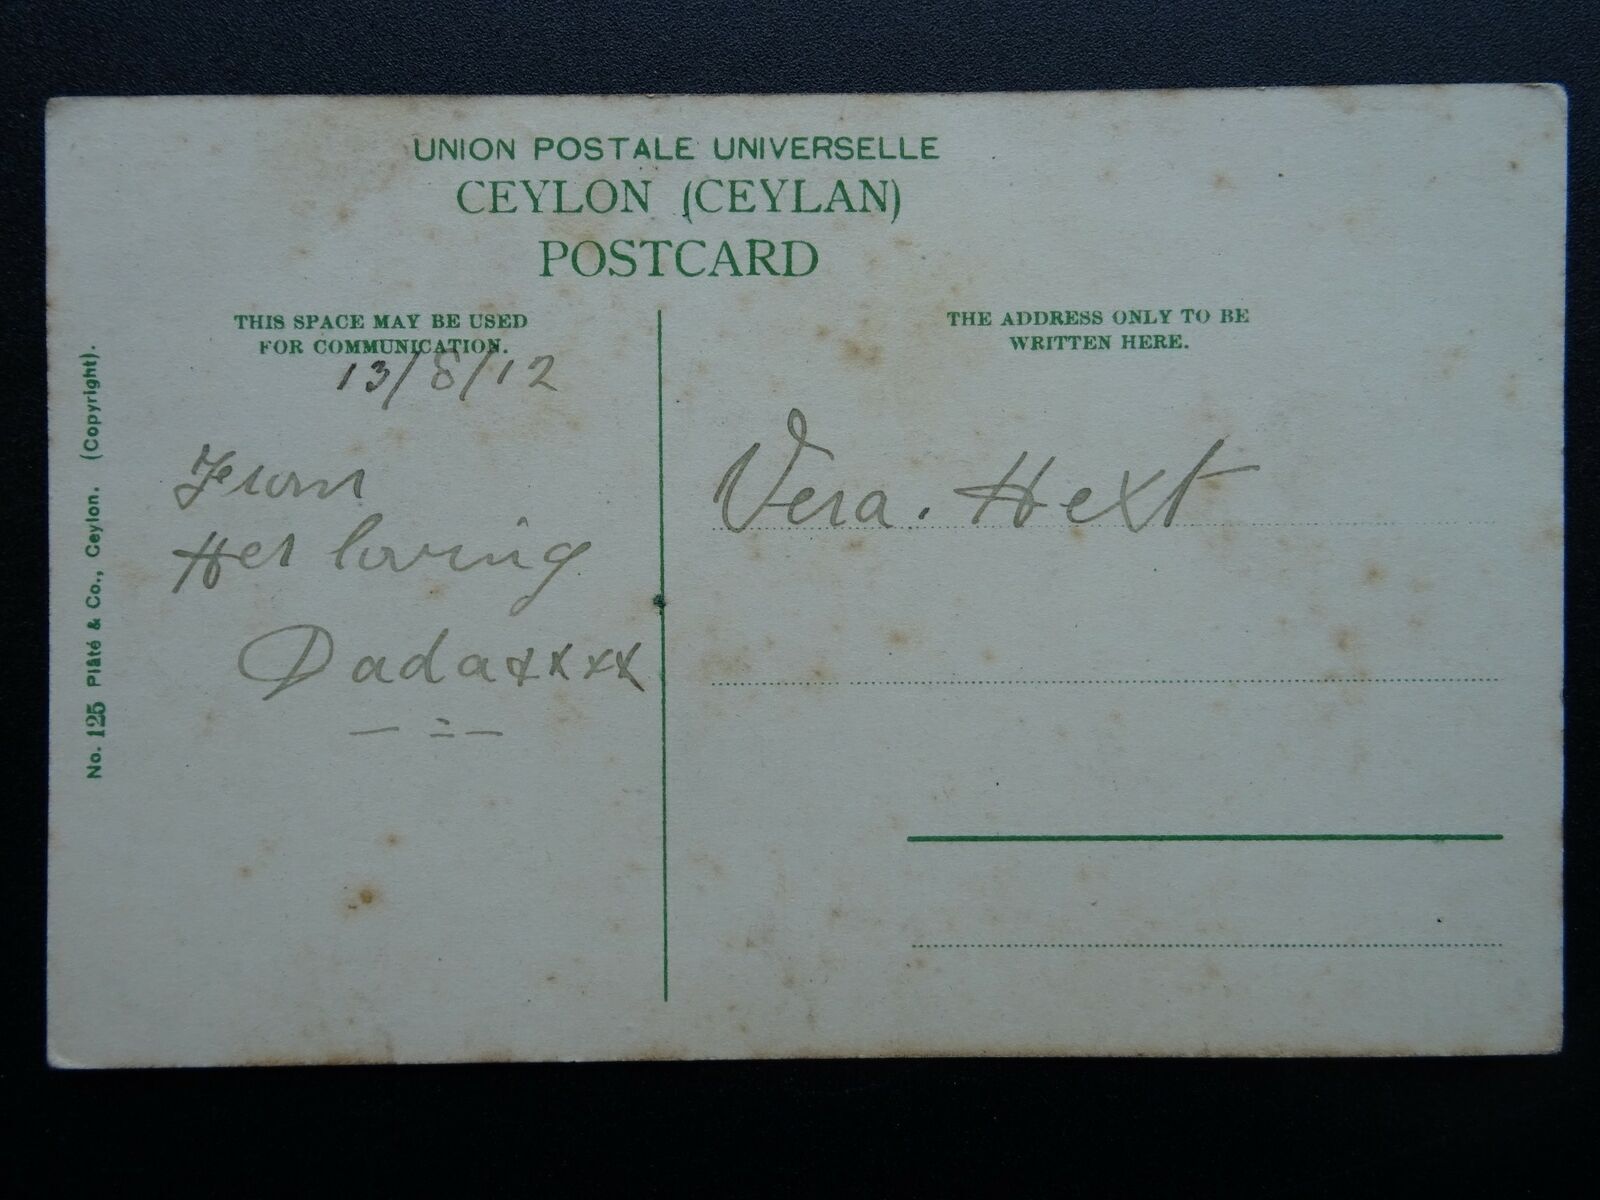 UNION POSTALE UNIVERSELLE
CEYLON (CEYLAN)
POSTCARD
THIS SPACE MAY BE USED
FOR COMMUNICATION.
13/8/12
From
Her loving
Dadaxxxx
THE ADDRESS ONLY TO BE
WRITTEN HERE.
Vera. Hext
No. 125 Plâté & Co., Ceylon. (Copyright).